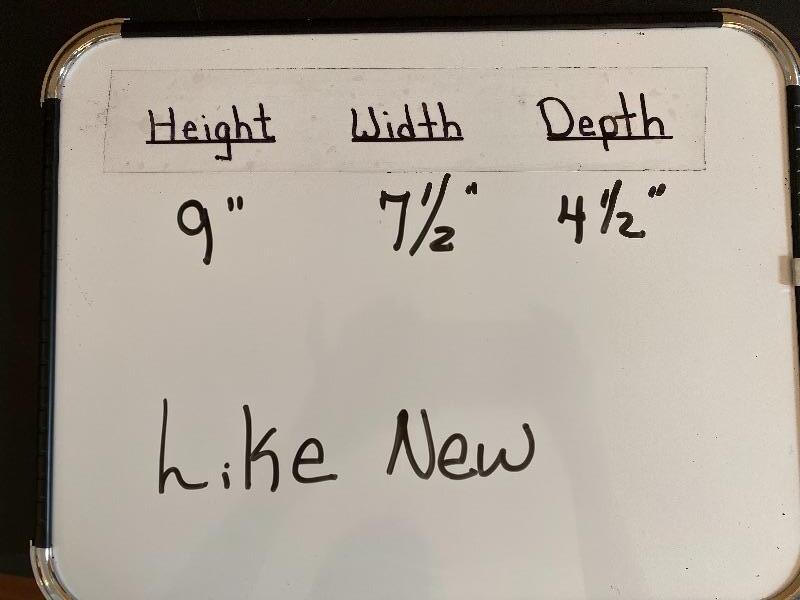 Height Width Depth
9" 7 1/2" 4 1/2"
Like New